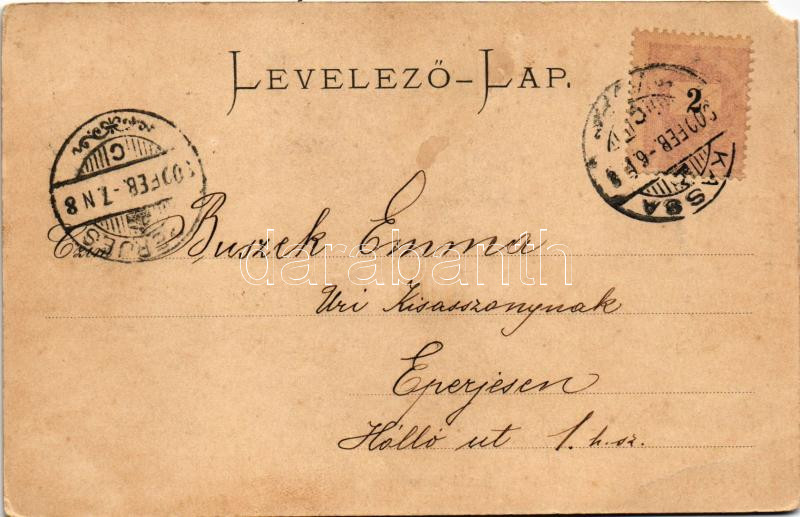 LEVELEZŐ-LAP.
2
KASSA
900 FEB. -6. F 8
900 FEB. -7. N 8
C
EPERJES
Czím Buszek Emma
darabanth
Uri Kisasszonynak
Eperjesen
Hólló ut 1. h. sz.